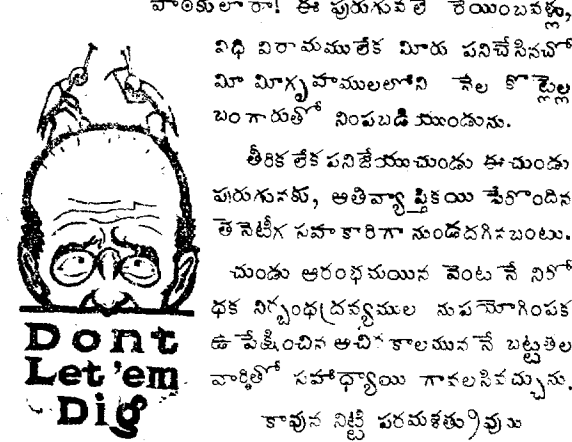 పాఠకులారా! ఈ పురుగువలే రేయింబవళ్లు,
విధి విరామములేక మీరు పనిచేసినచో
మీ మీగృహములలోని నేల కొట్లెల్ల
బంగారుతో నింపబడి యుండును.
తీరిక లేక పనిజేయుచుండు ఈచుండు
పురుగునకు, అతివ్యాప్తికయి పేరొందిన
తెనెటీగ సహకారిగా నుండదగినబంటు.
చుండు ఆరంభమయిన వెంటనే నిరో
ధక నిర్బంధద్రవ్యముల నుపయోగింపక
ఉపేక్షించిన అచిరకాలమున నే బట్టతల
వార్తితో సహాధ్యాయి గావలసివచ్చును.
కావున నిట్టి పరమశత్రువును
Dont
Let'em
Dig